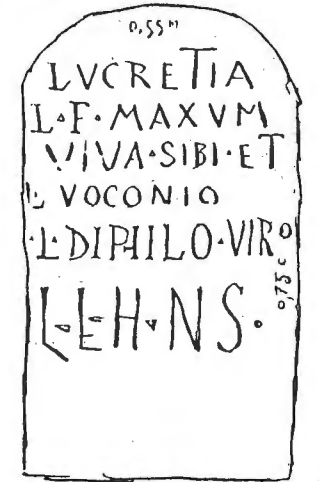 0,55 M
LVCRETIA
L·F·MAXVM
VIVA·SIBI·ET
L· VOCONIO
·L·DIPHILO·VIRO
0,75 c
L·E·H·N S·